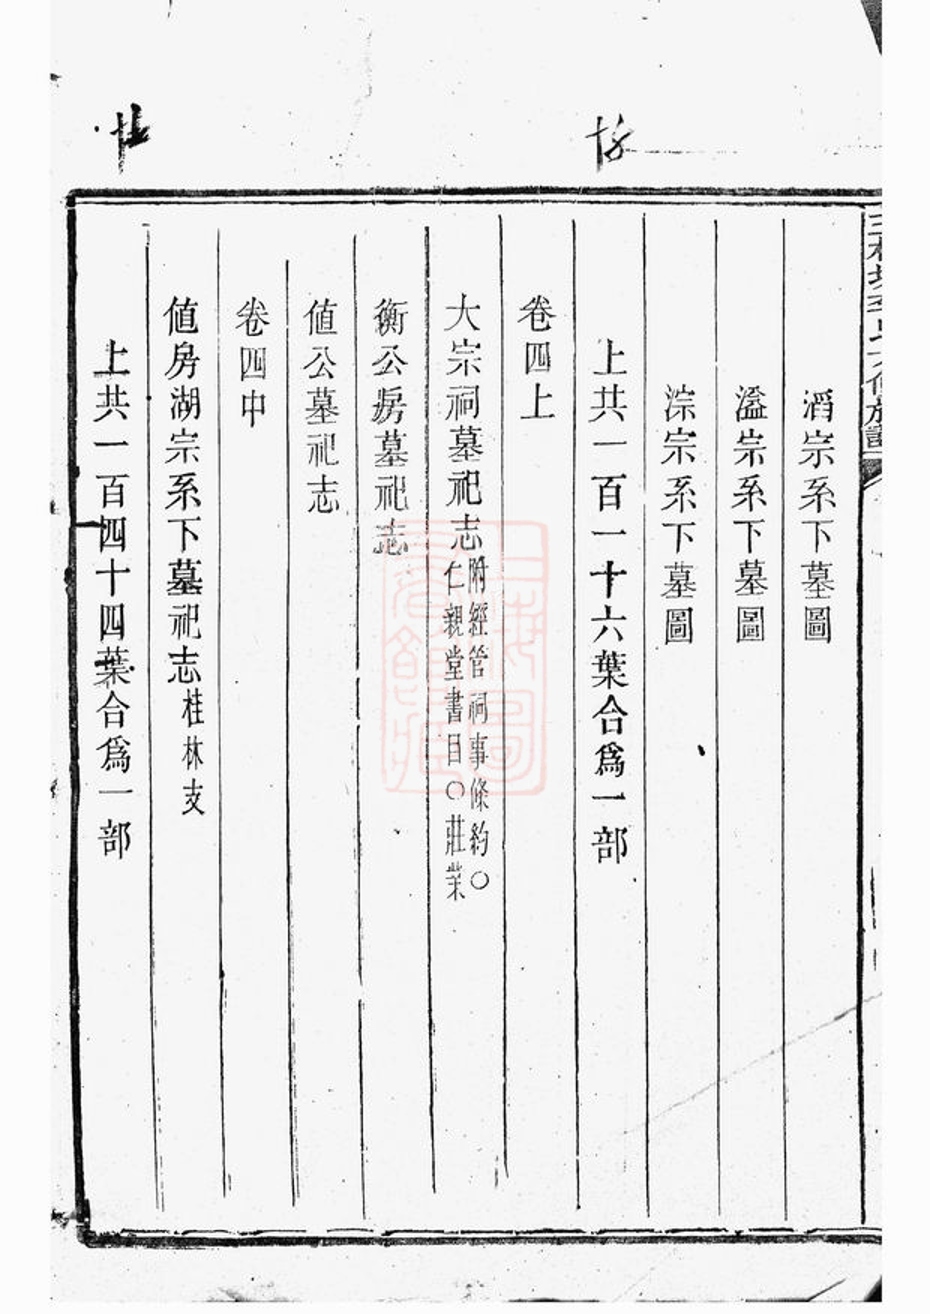 滔宗系下墓圖
溢宗系下墓圖
淙宗系下墓圖
上共一百一十六葉合爲一部
卷四上
大宗祠墓祀志附經管祠事條約○
仁親堂書目○莊業
衡公房墓祀志
值公墓祀志
卷四中
值房湖宗系下墓祀志桂林支
上共一百四十四葉合爲一部
上海圖書館藏